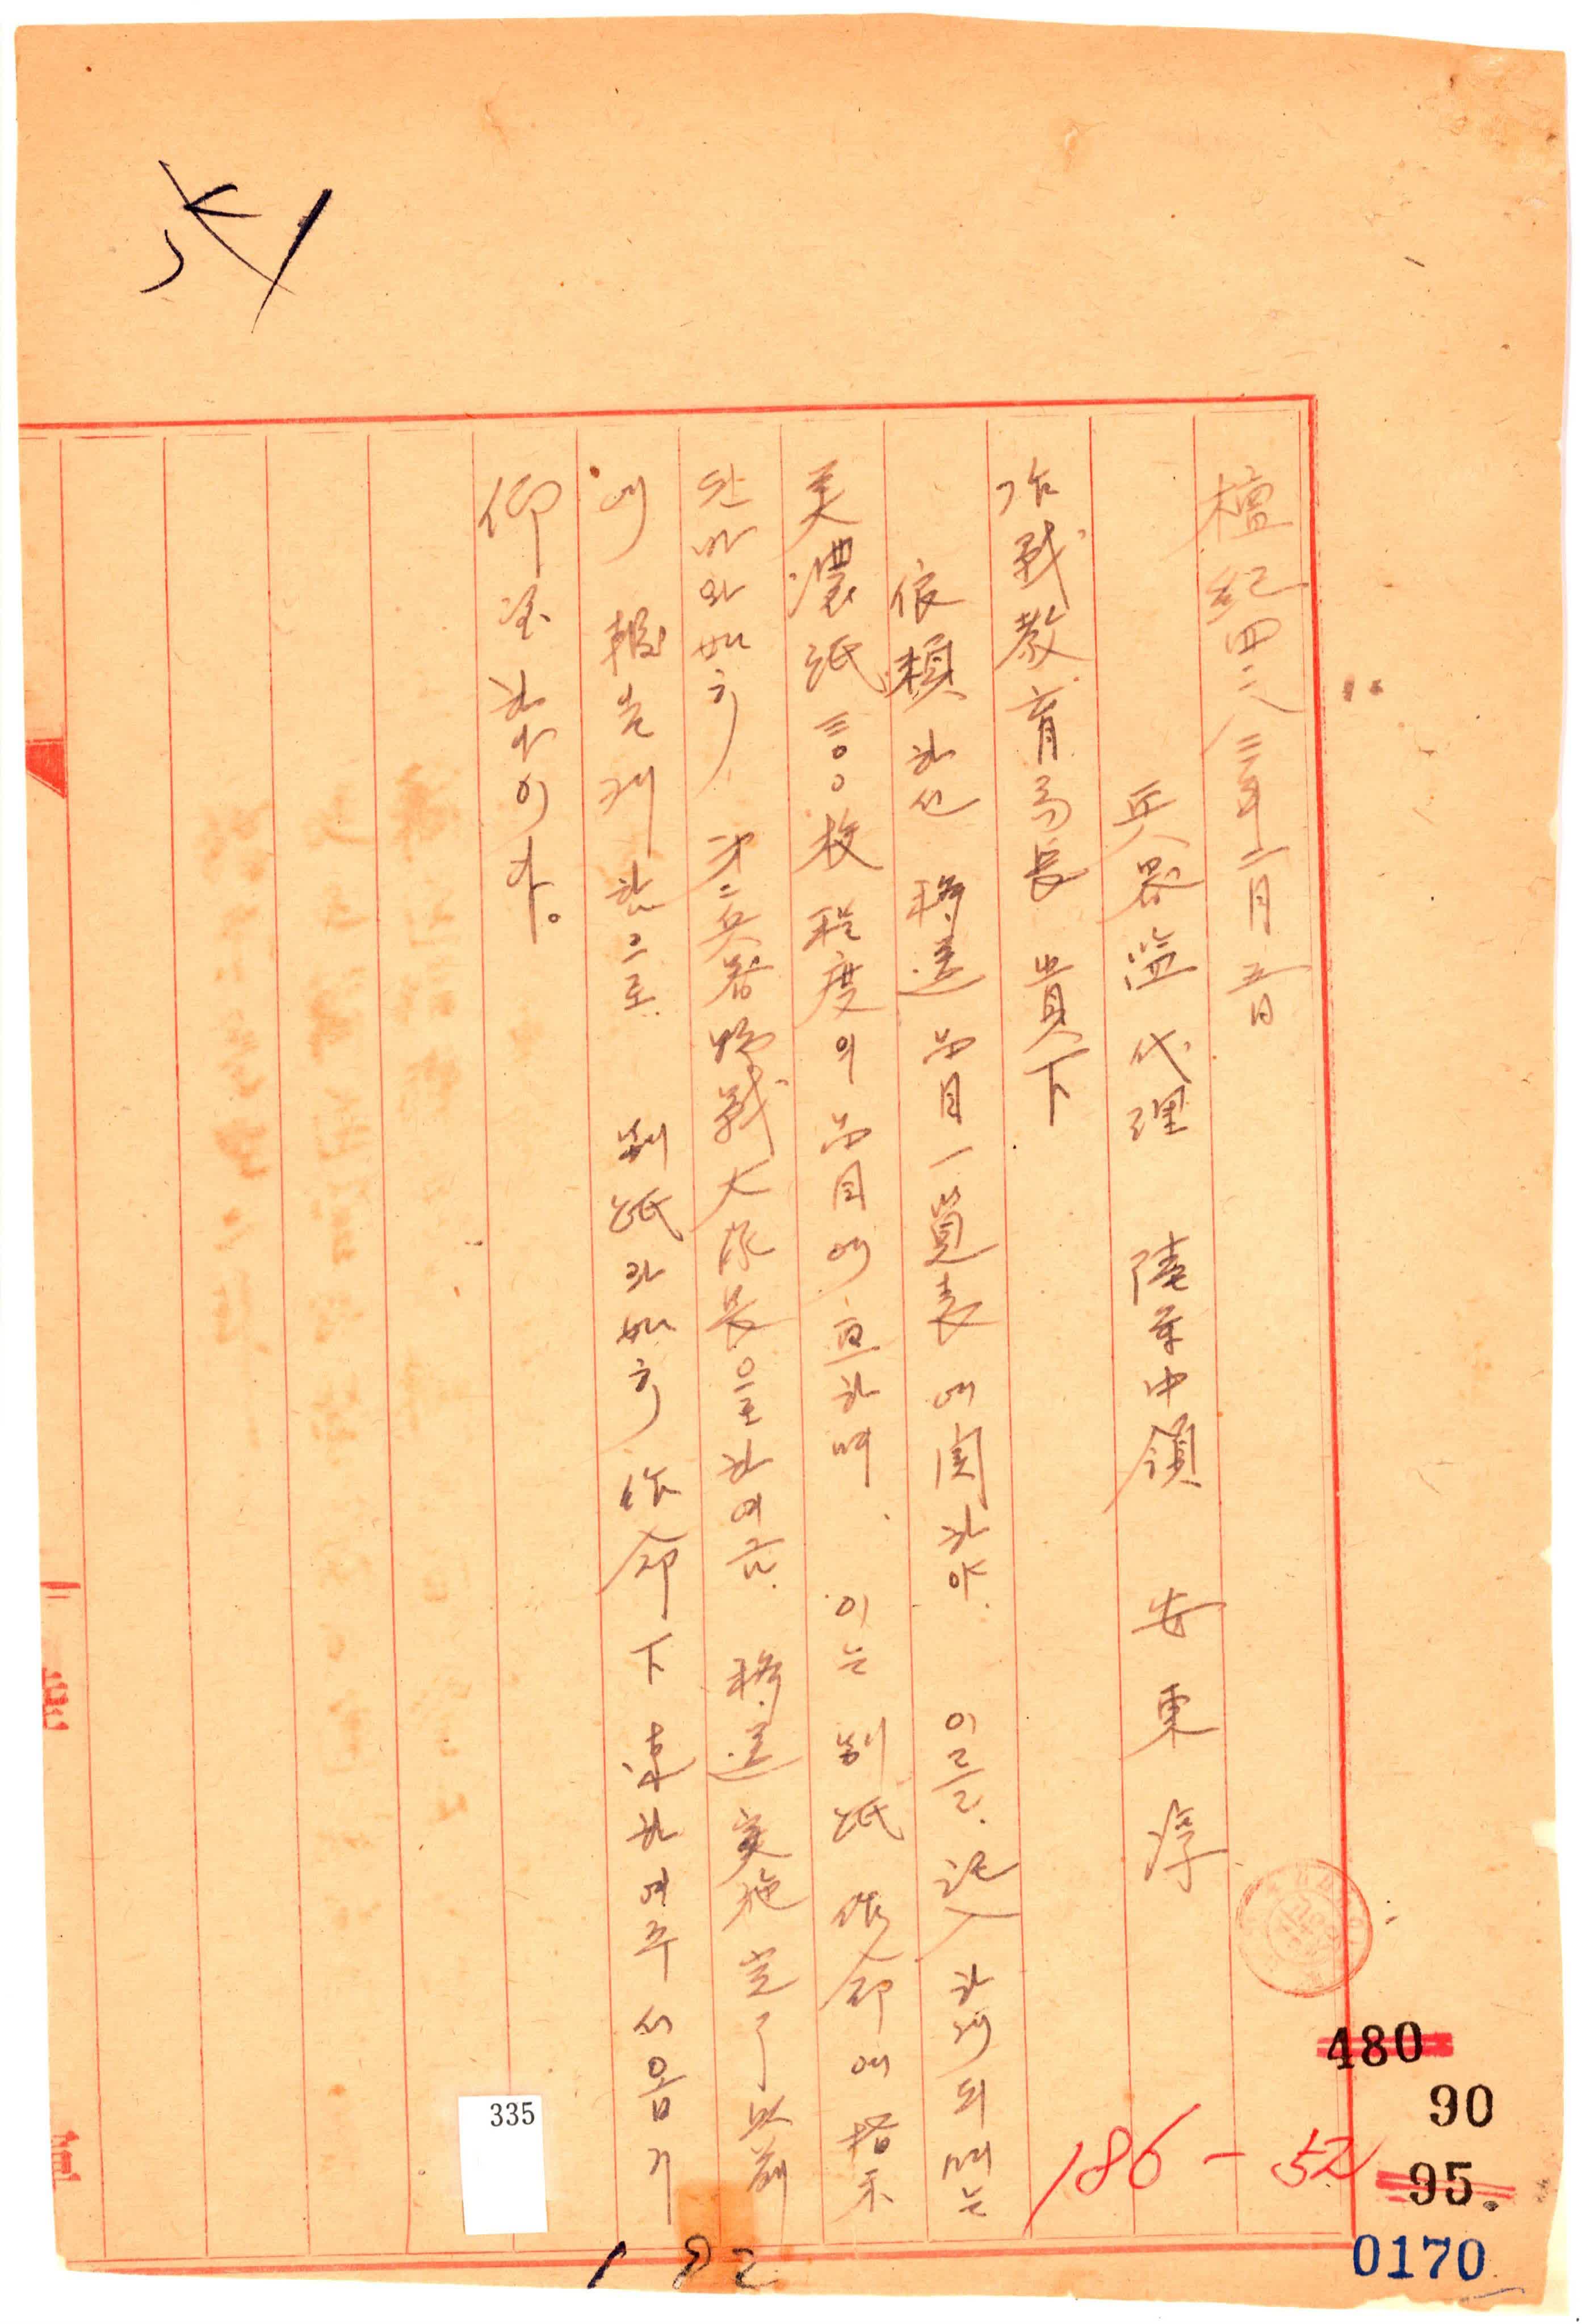 檀紀四二八三年二月五日
兵器監代理 陸軍中領 安東淳
作戰敎育局長 貴下
依賴하신 移送品目一覽表에 関하야. 이를. 記入하
美濃紙 三〇〇枚 程度의 品目에 하며. 이는 別紙 作命에 指示
한바와如히 第二兵器野戰大隊長으로하여금. 移送 実施 完了 以前
에 報告케 함으로. 別紙와如히 作命 下達하여주시옵기
仰望하나이다。
480
90
186-52
95.
0170
335
182